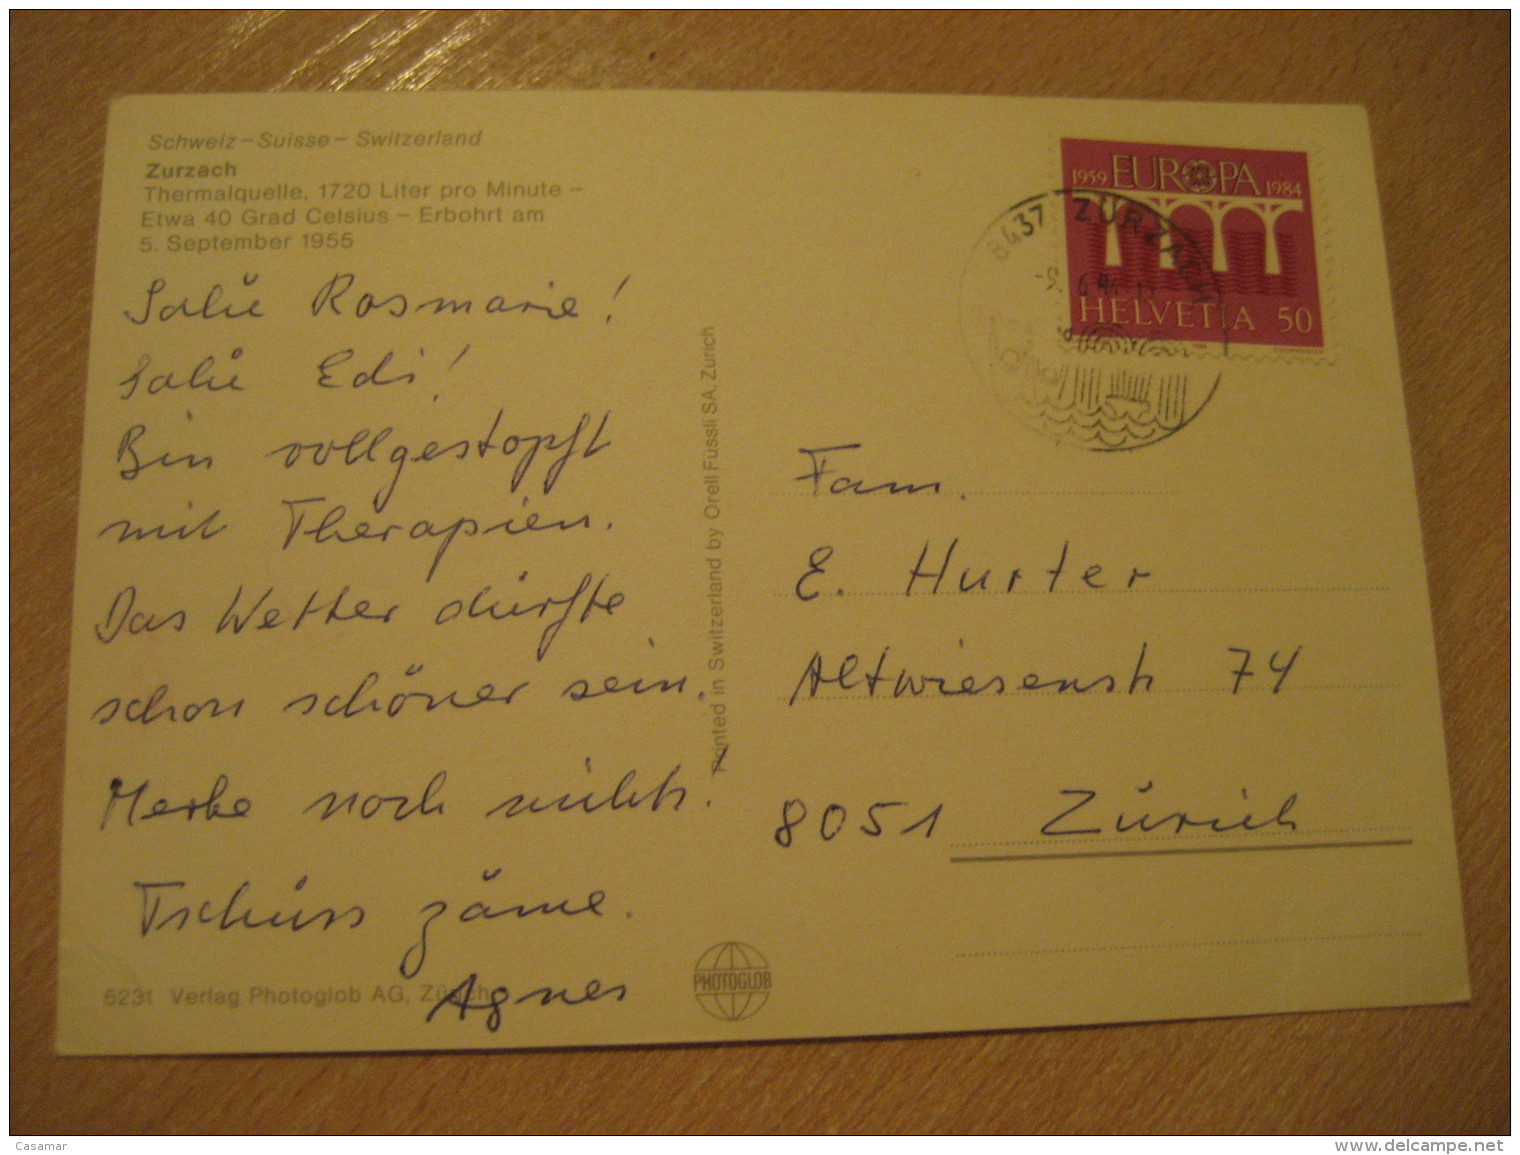 Schweiz – Suisse – Switzerland
Zurzach
Thermalquelle, 1720 Liter pro Minute –
Etwa 40 Grad Celsius – Erbohrt am
5. September 1955
Salü Rosmarie!
Salü Edi!
Bin vollgestopft
mit Therapien.
Das Wetter dürfte
schon schöner sein.
Merke noch nichts!
Tschüss zäme.
Agnes
5231 Verlag Photoglob AG, Zürich
Printed in Switzerland by Orell Füssli SA, Zürich
PHOTOGLOB
1959 EUROPA 1984
HELVETIA 50
8437 ZURZACH
Fam.
E. Hurter
Altwiesenstr 74
8051 Zürich
Casamar
www.delcampe.net